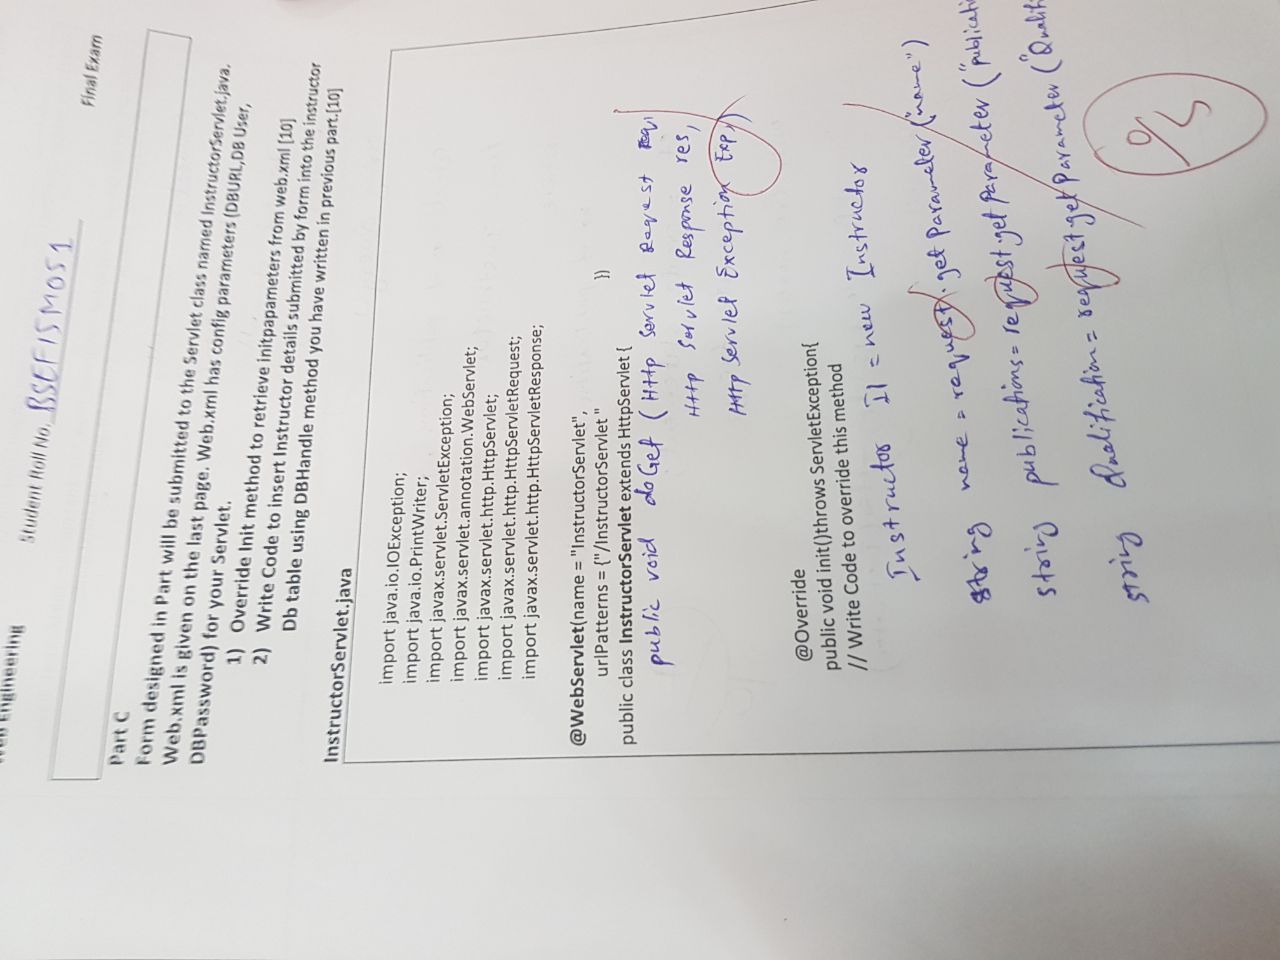 Web Engineering
Student Roll No. BSEF15M051
Final Exam
Part C
Form designed in Part will be submitted to the Servlet class named InstructorServlet.java.
Web.xml is given on the last page. Web.xml has config parameters (DBURL,DB User,
DBPassword) for your Servlet.
1) Override Init method to retrieve initpapameters from web.xml [10]
2) Write Code to insert Instructor details submitted by form into the instructor
Db table using DBHandle method you have written in previous part.[10]
InstructorServlet.java
import java.io.IOException;
import java.io.PrintWriter;
import javax.servlet.ServletException;
import javax.servlet.annotation.WebServlet;
import javax.servlet.http.HttpServlet;
import javax.servlet.http.HttpServletRequest;
import javax.servlet.http.HttpServletResponse;
@WebServlet(name = "InstructorServlet",
urlPatterns = {"/InstructorServlet " })
public class InstructorServlet extends HttpServlet {
public void doGet (Http Servlet Request req,
Http Servlet Response res,
Http Servlet Exception Exp,)
@Override
public void init()throws ServletException{
// Write Code to override this method
Instructor I1 = new Instructor
string name = request.get Parameter ("name")
string publications = request.get Parameter ("publicati
string Qualification = request.get Parameter ("Qualifi
0/5